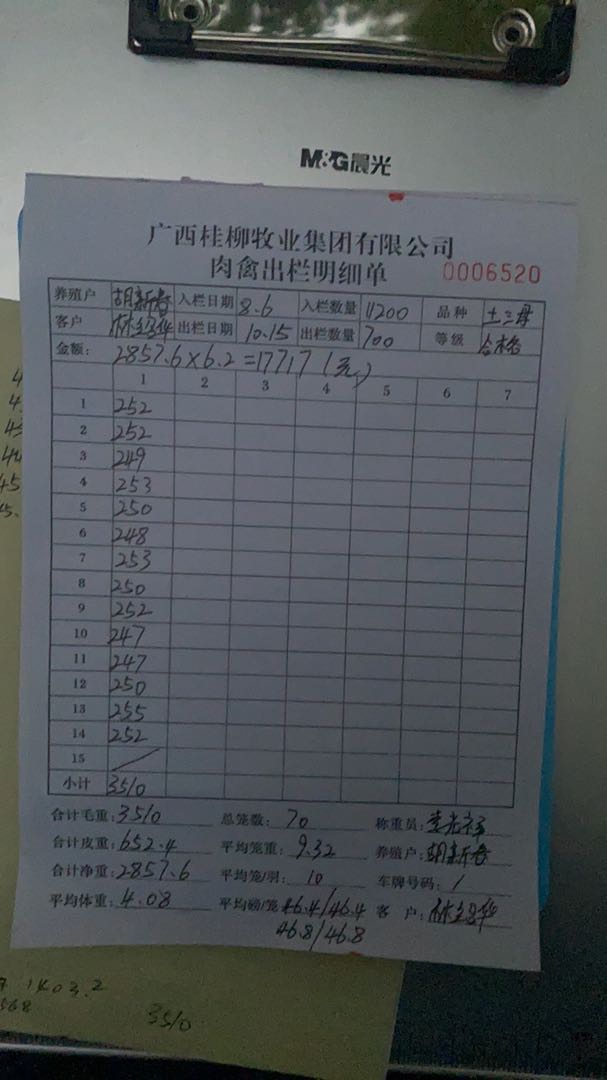 M&G晨光
广西桂柳牧业集团有限公司
肉禽出栏明细单 0006520
养殖户 胡新春 入栏日期 8.6 入栏数量 11200 品种 土三母
客户 林绍华 出栏日期 10.15 出栏数量 700 等级 合格
金额: 2857.6×6.2=17717(元)
1 2 3 4 5 6 7
1 252
2 252
3 249
4 253
5 250
6 248
7 253
8 250
9 252
10 247
11 247
12 250
13 255
14 252
15 /
小计 3510
合计毛重: 3510 总笼数: 70 称重员:
合计皮重: 652.4 平均笼重: 9.32 养殖户: 胡新春
合计净重: 2857.6 平均笼/羽: 10 车牌号码: /
平均体重: 4.08 平均磅/笼 46.4/46.4 客 户: 林绍华
46.8/46.8
1K03.2
568
3510